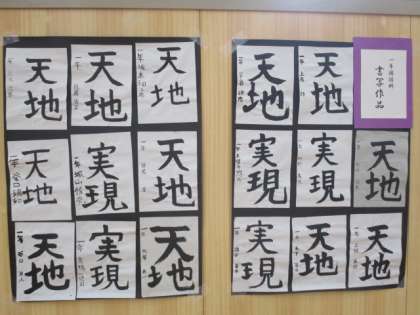 天地
天地
天地
天地
実現
天地
天地
実現
天地
天地
天地
一年国語科
書写作品
実現
実現
天地
実現
天地
天地